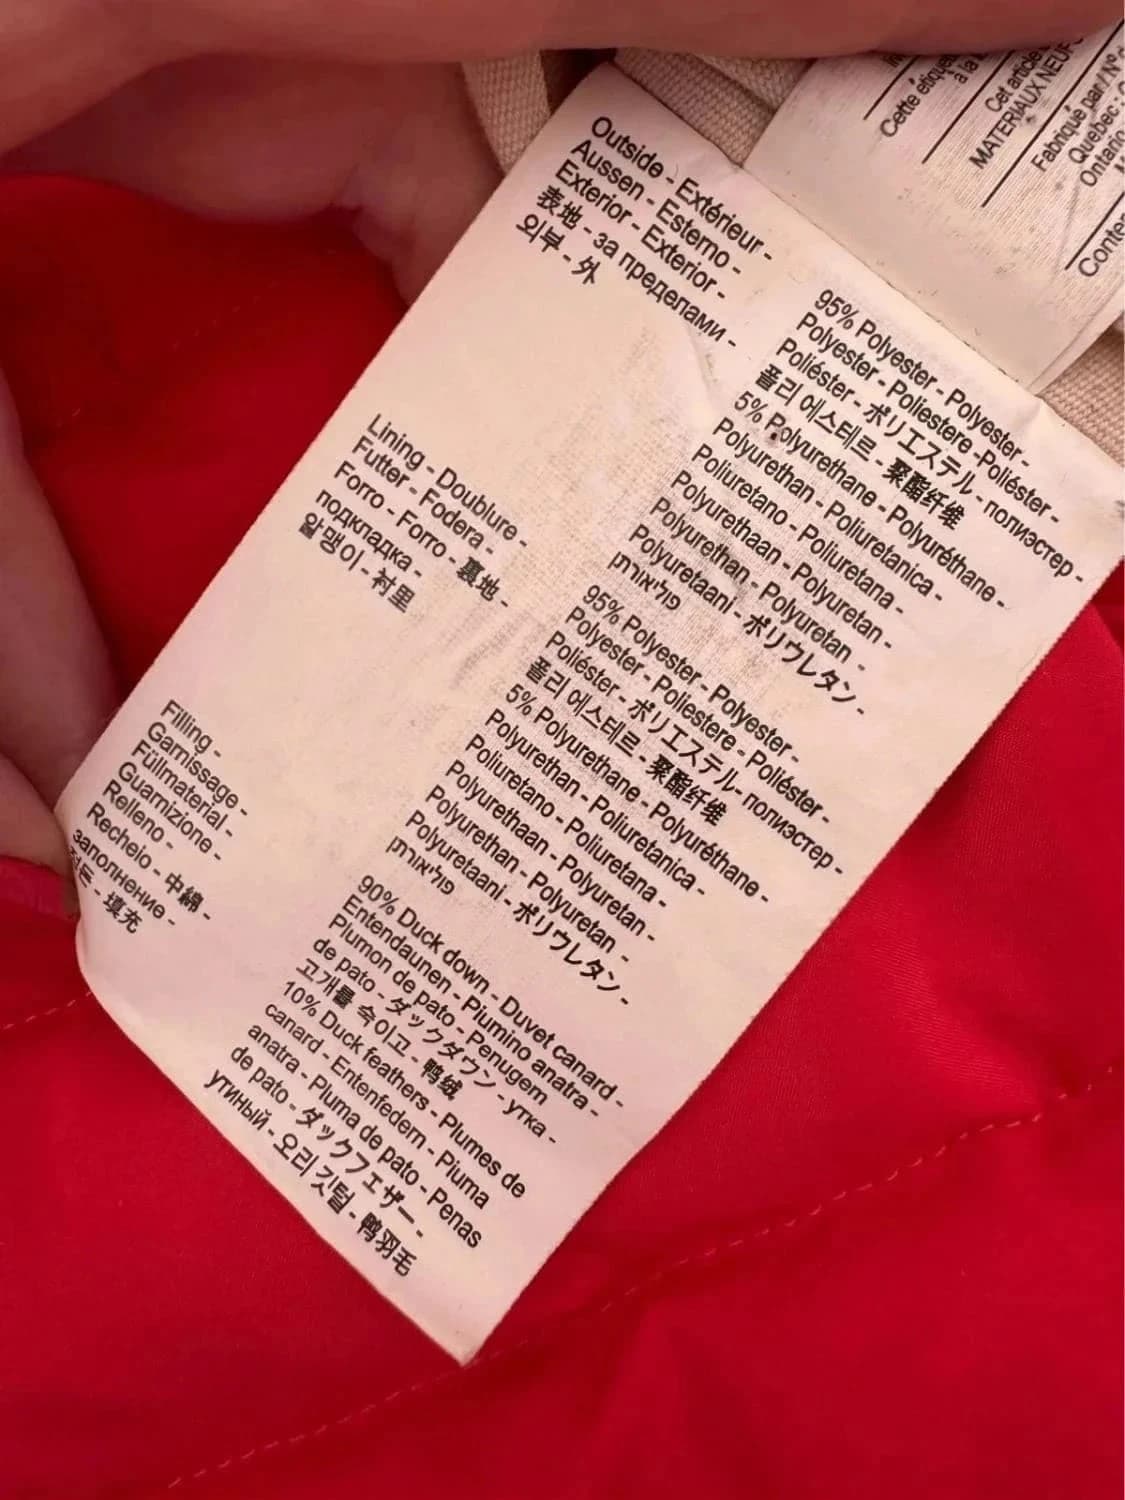 Outside - Extérieur -
Aussen - Esterno -
Exterior - Exterior -
表地 - за пределами -
외부 - 外
95% Polyester - Polyester -
Polyester - Poliestere -Poliéster -
Poliéster - ポリエステル - полиэстер -
폴리 에스테르 - 聚酯纤维
5% Polyurethane - Polyuréthane -
Polyurethan - Poliuretanica -
Poliuretano - Poliuretana -
Polyurethaan - Polyuretan -
Polyurethan - Polyuretan -
Polyuretaani - ポリウレタン -
פוליאורתן
Lining - Doublure -
Futter - Fodera -
Forro - Forro - 裏地 -
подкладка -
알맹이 - 衬里
95% Polyester - Polyester -
Polyester - Poliestere - Poliéster -
Poliéster - ポリエステル- полиэстер -
폴리 에스테르 - 聚酯纤维
5% Polyurethane - Polyuréthane -
Polyurethan - Poliuretanica -
Poliuretano - Poliuretana -
Polyurethaan - Polyuretan -
Polyurethan - Polyuretan -
Polyuretaani - ポリウレタン -
פוליאורתן
Filling -
Garnissage -
Füllmaterial -
Guarnizione -
Relleno -
Recheio - 中綿 -
заполнение -
- 填充
90% Duck down - Duvet canard -
Entendaunen - Piumino anatra -
Plumon de pato - Penugem
de pato - ダックダウン - утка -
고개를 숙이고 - 鸭绒
10% Duck feathers - Plumes de
canard - Entenfedern - Piuma
anatra - Pluma de pato - Penas
de pato - ダックフェザー -
утиный - 오리 깃털 - 鸭羽毛
Cette
à la
Cet article
MATERIAUX NEUFS
Fabriqué par/N° d
Quebec :
Ontario